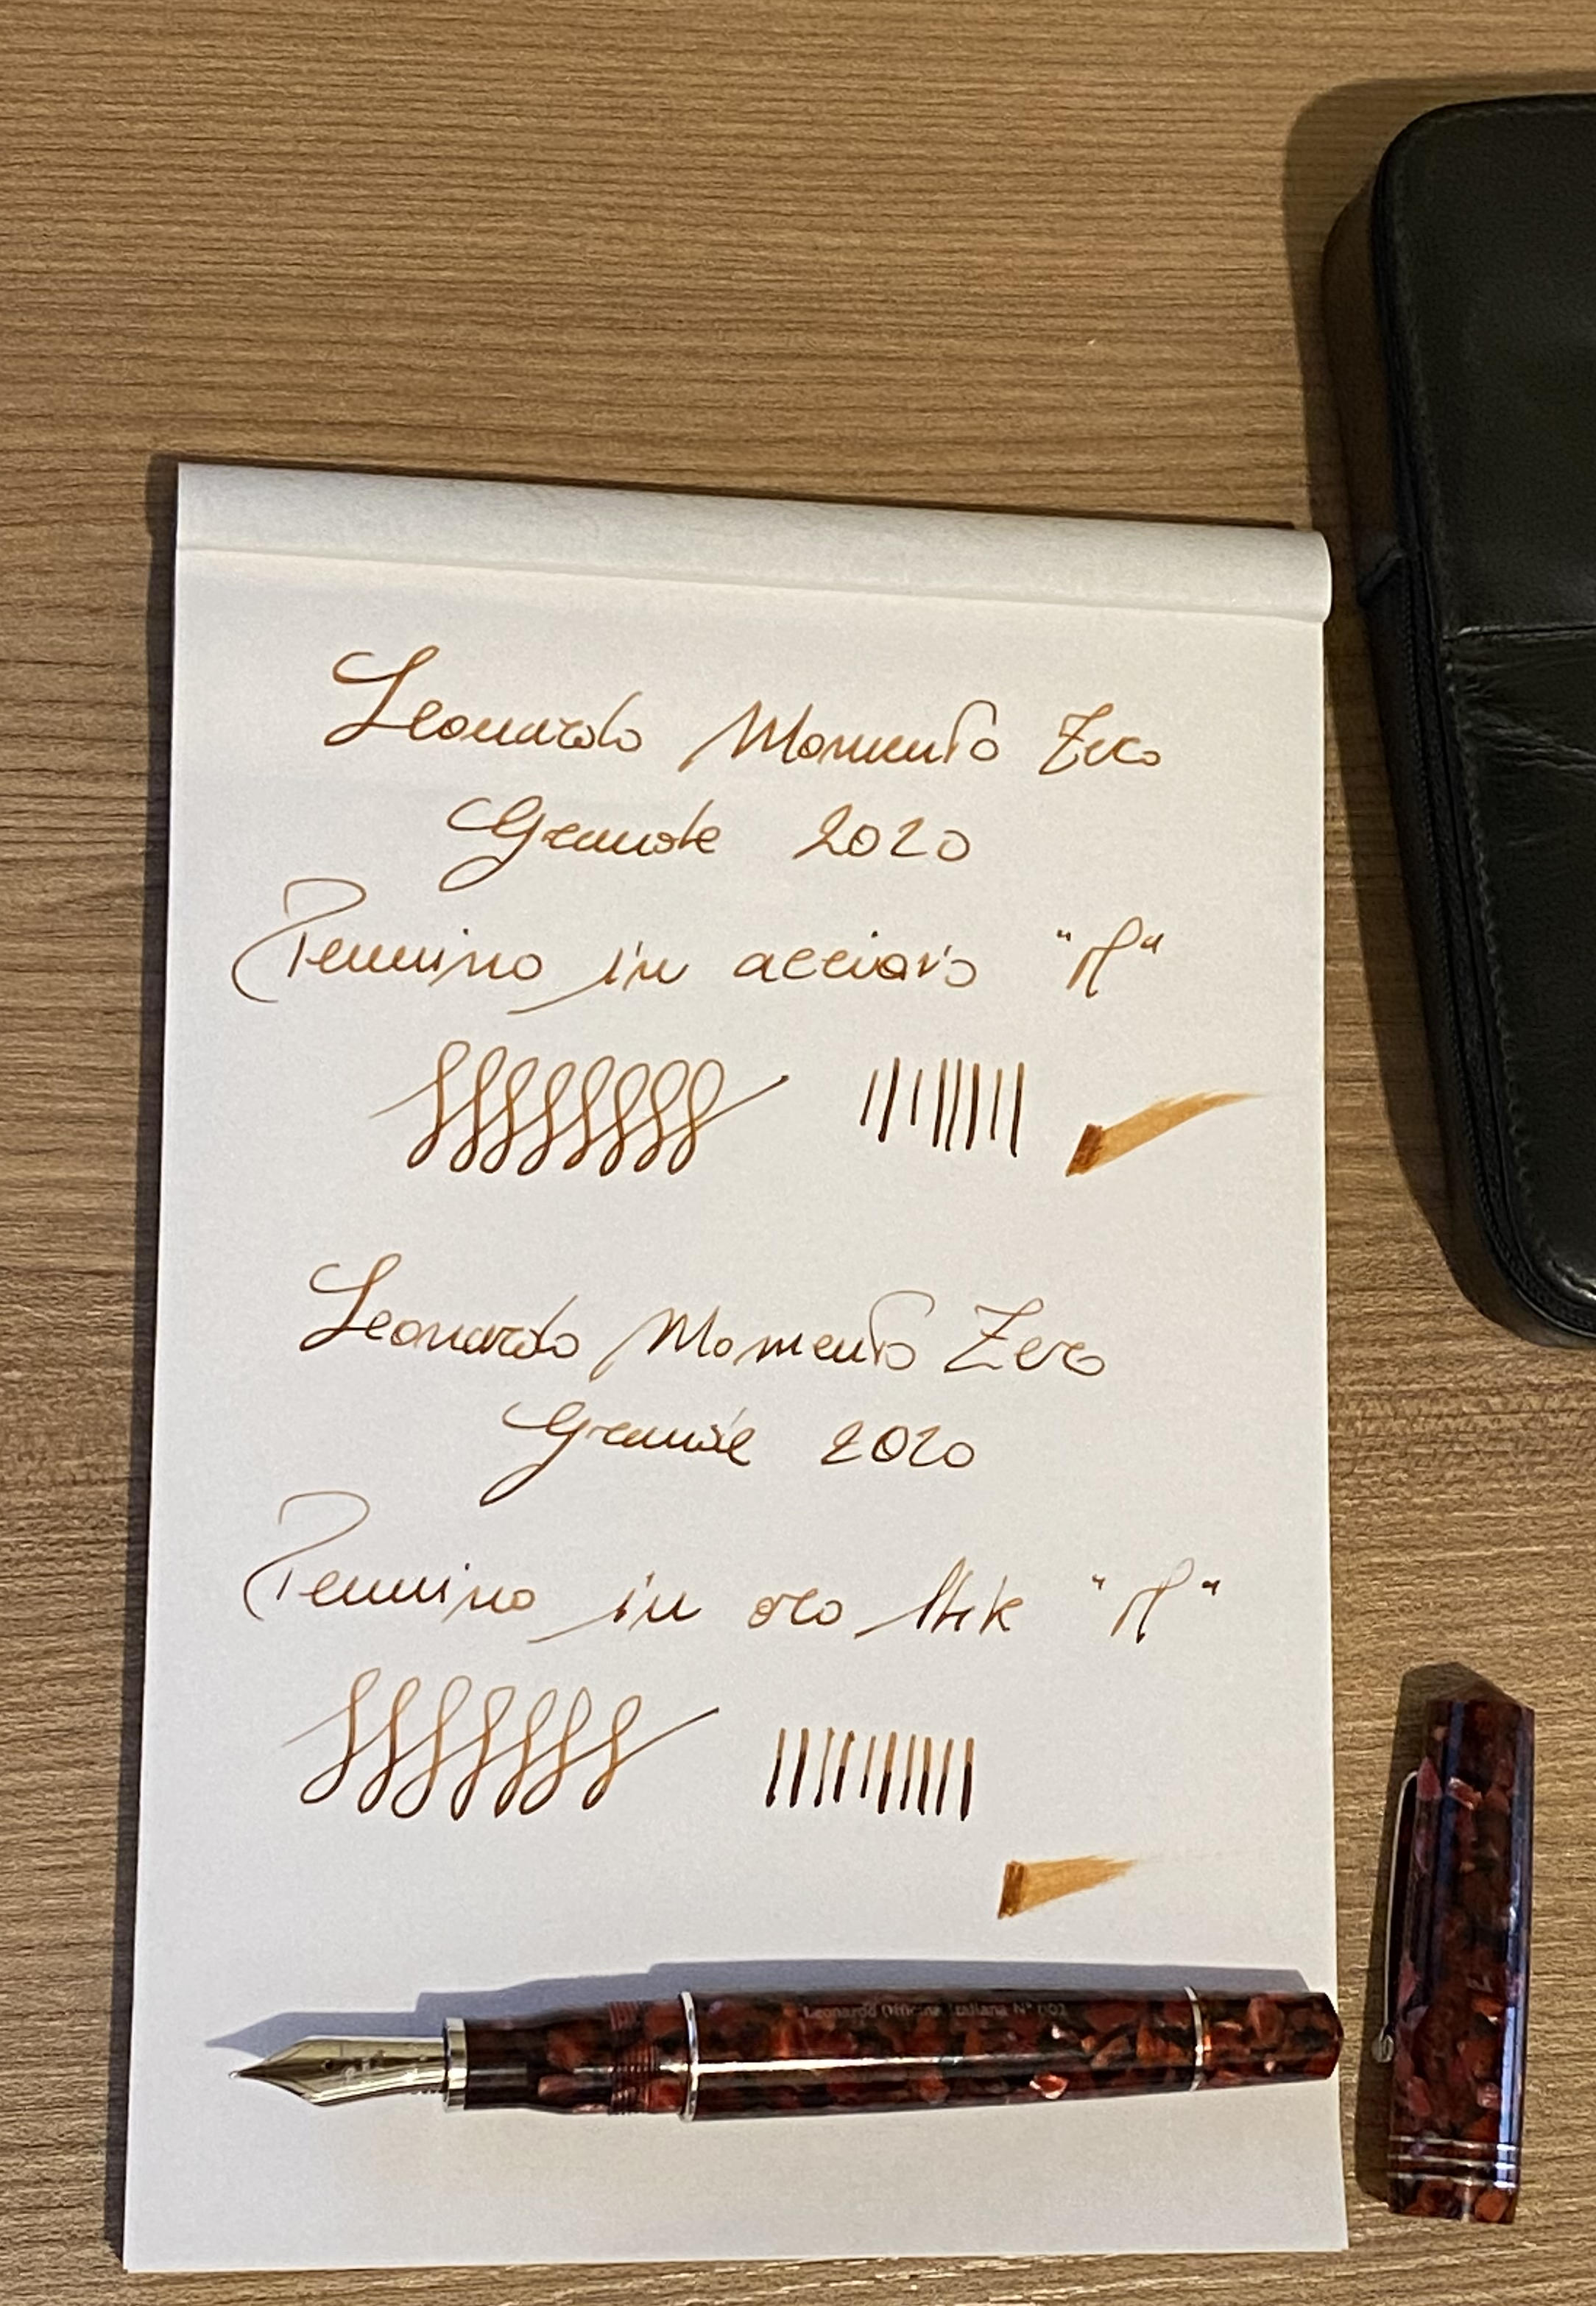 Leonardo Momento Zero
Grande 2020
Pennino in acciaio "M"
Leonardo Momento Zero
Grande 2020
Pennino in oro 14k "M"
Leonardo Officina Italiana N° 001